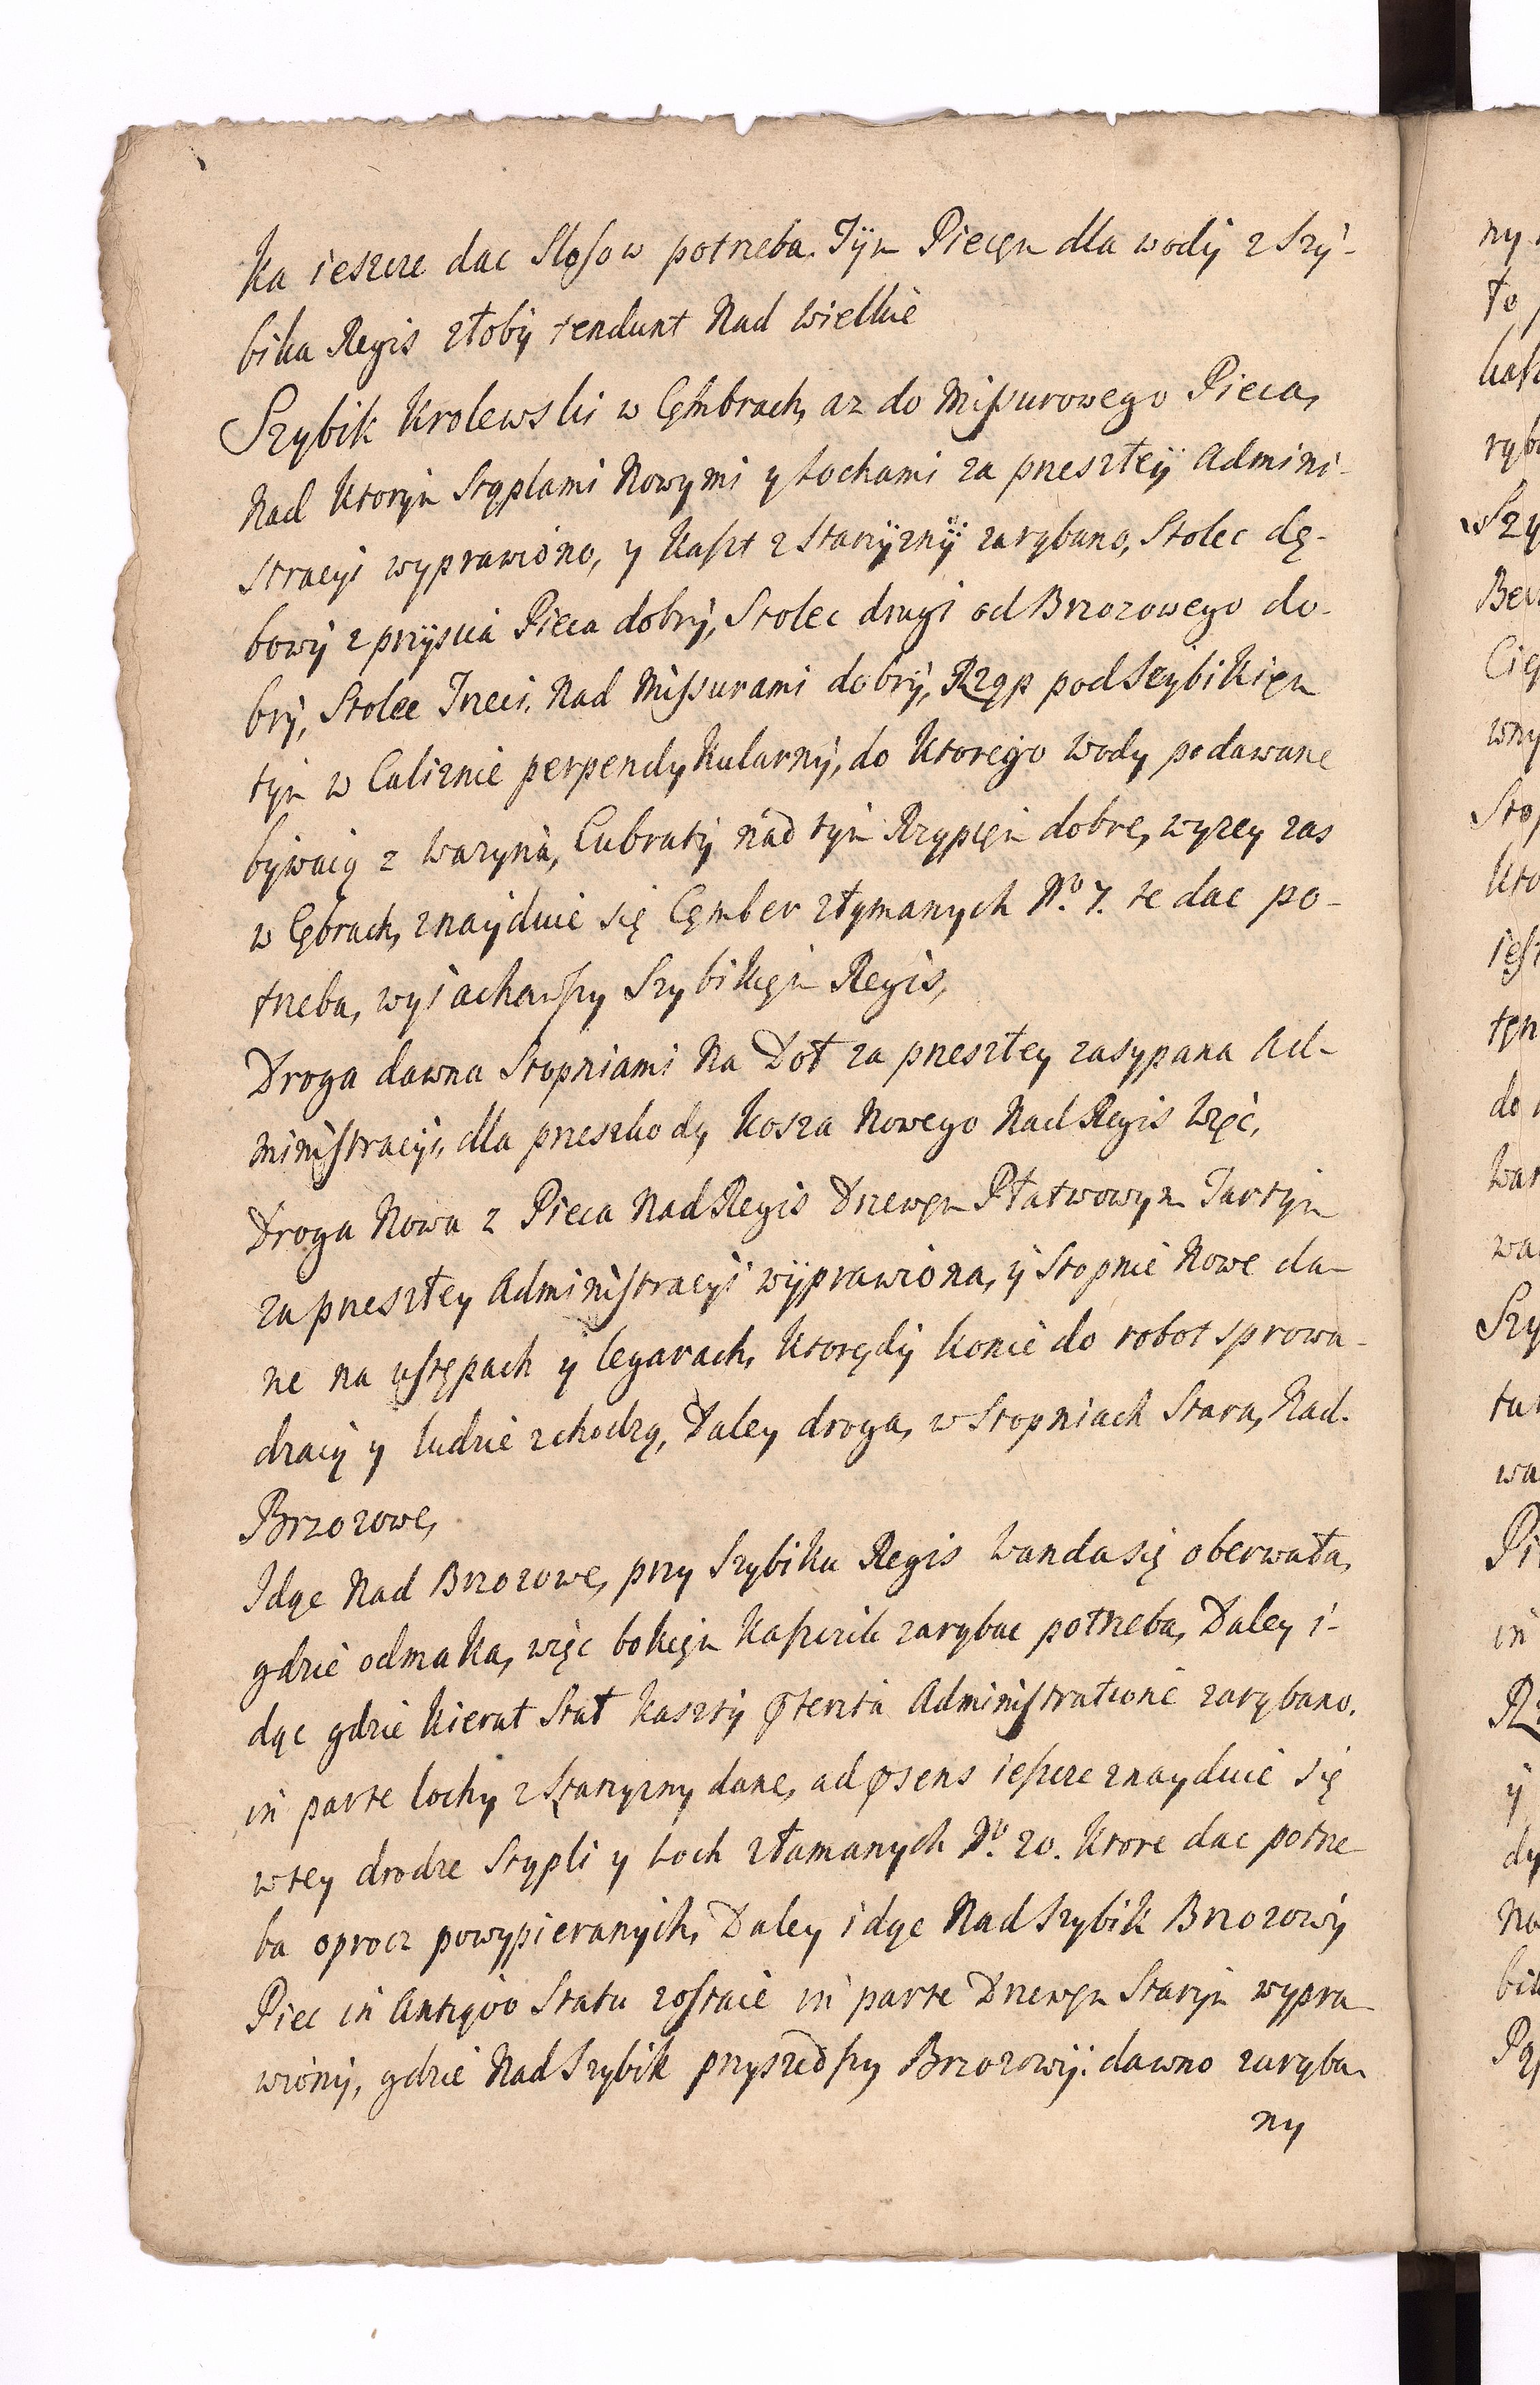 ka ieszcze dac Slosow potrzeba. Tÿm Piecęm dla wodÿ z Szÿ-
bika Regis złobÿ tendunt Nad Wielkie
Szybik Krolewski w Cęmbrach, az do Missurowego Pieca,
Nad ktorÿm Stęplami Nowymi y Lochami za przeszłeÿ Admini-
stracyi wyprawiono, y Kaszt z Starÿznÿ zarąbano, Stolec dę-
bowÿ z przÿscia Pieca dobrÿ, Stolec drugi od Brzozowego do-
brÿ, Stolec Trzeci Nad Missurami dobrÿ, Rząp pod Szÿbikięm
tÿm w Caliznie perpendykularnÿ, do ktorego Wody podawane
bÿwaią z Wazyna, Cubratÿ nad tÿm Rząpięm dobre, wyzey zas
w Cębrach, znaÿduie się Cęmber złymanych No. 7. te dac po-
trzeba, wyiachawszy Szybikięm Regis,
Droga dawna Stopniami Na Doł za przeszłey zasypana Ad-
ministracyi, dla przeszkody Kosza Nowego Nad Regis Więc,
Droga Nowa z Pieca Nad Regis Drzewęm Płatwowym Tartÿm
za przeszłey Administracyi wÿprawiona, ÿ Stopnie Nowe da-
ne na ustępach y legarach, ktorędÿ konie do robot sprowa-
dzaią y ludzie zchodzą, Daley droga, w Stopniach Stara, Nad.
Brzozowe,
Idąc Nad Brzozowe, przy Szybiku Regis Wanda się oberwała,
gdzie odmaka, więc bokięm Kaszcik zarąbac potrzeba, Daley i-
dąc gdzie kierat Stał kasztÿ pterita Administratione zarąbano.
in parte lochy z Starzyzny dane, ad psens ieszcze znayduie się
w tey drodze Stępli y Loch złamanych No. 20. ktore dac potrze-
ba oprocz powypieranÿch, Daley idąc Nad Szybik Brzozowÿ
Piec in Antiqvo Statu zostaie in parte Drzewęm Starÿm wypra-
wionÿ, gdzie Nad Szybik przyszedszy Brzozowÿ. dawno zarąba-
ny